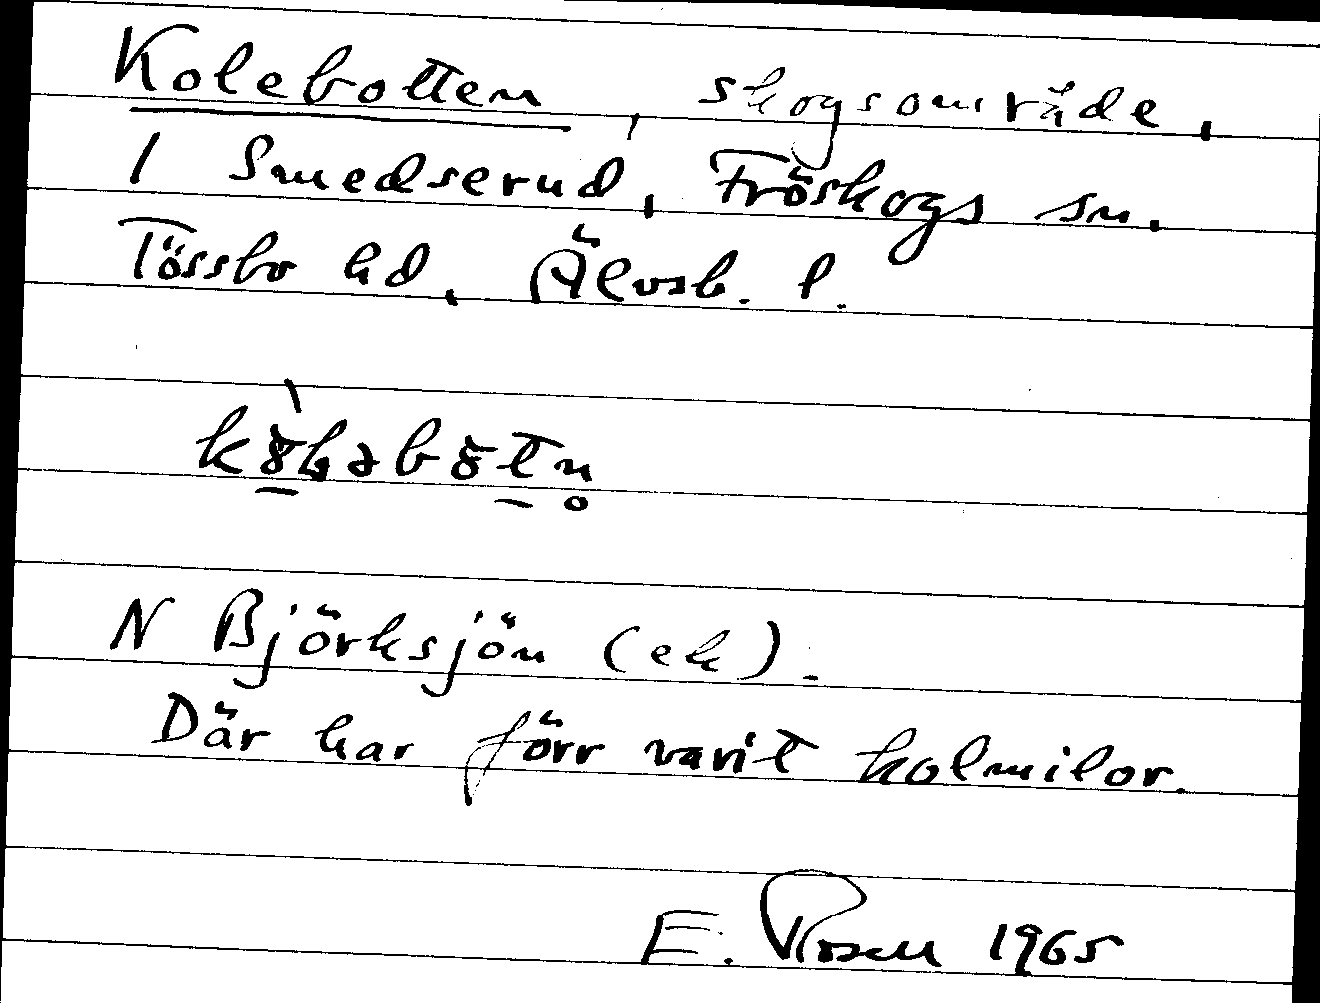 Kolebotten, skogsområde,
1 Smedserud, Fröskogs sn.
Tössbo hd, Älvsb. l.
N Björksjön (ek).
Där har förr varit kolmilor.
E. Rosell 1965